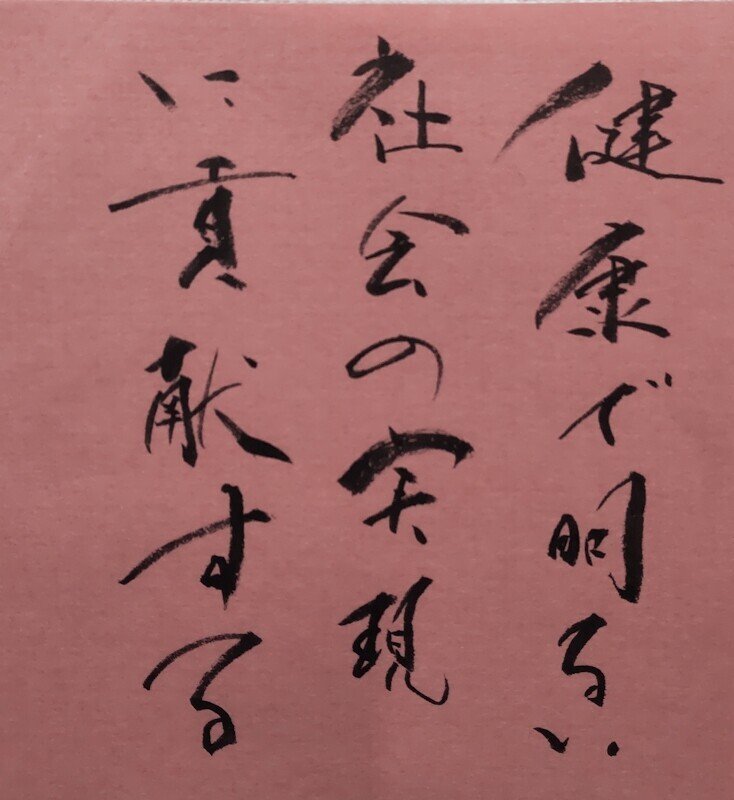 健康で明るい
社会の実現
に貢献する